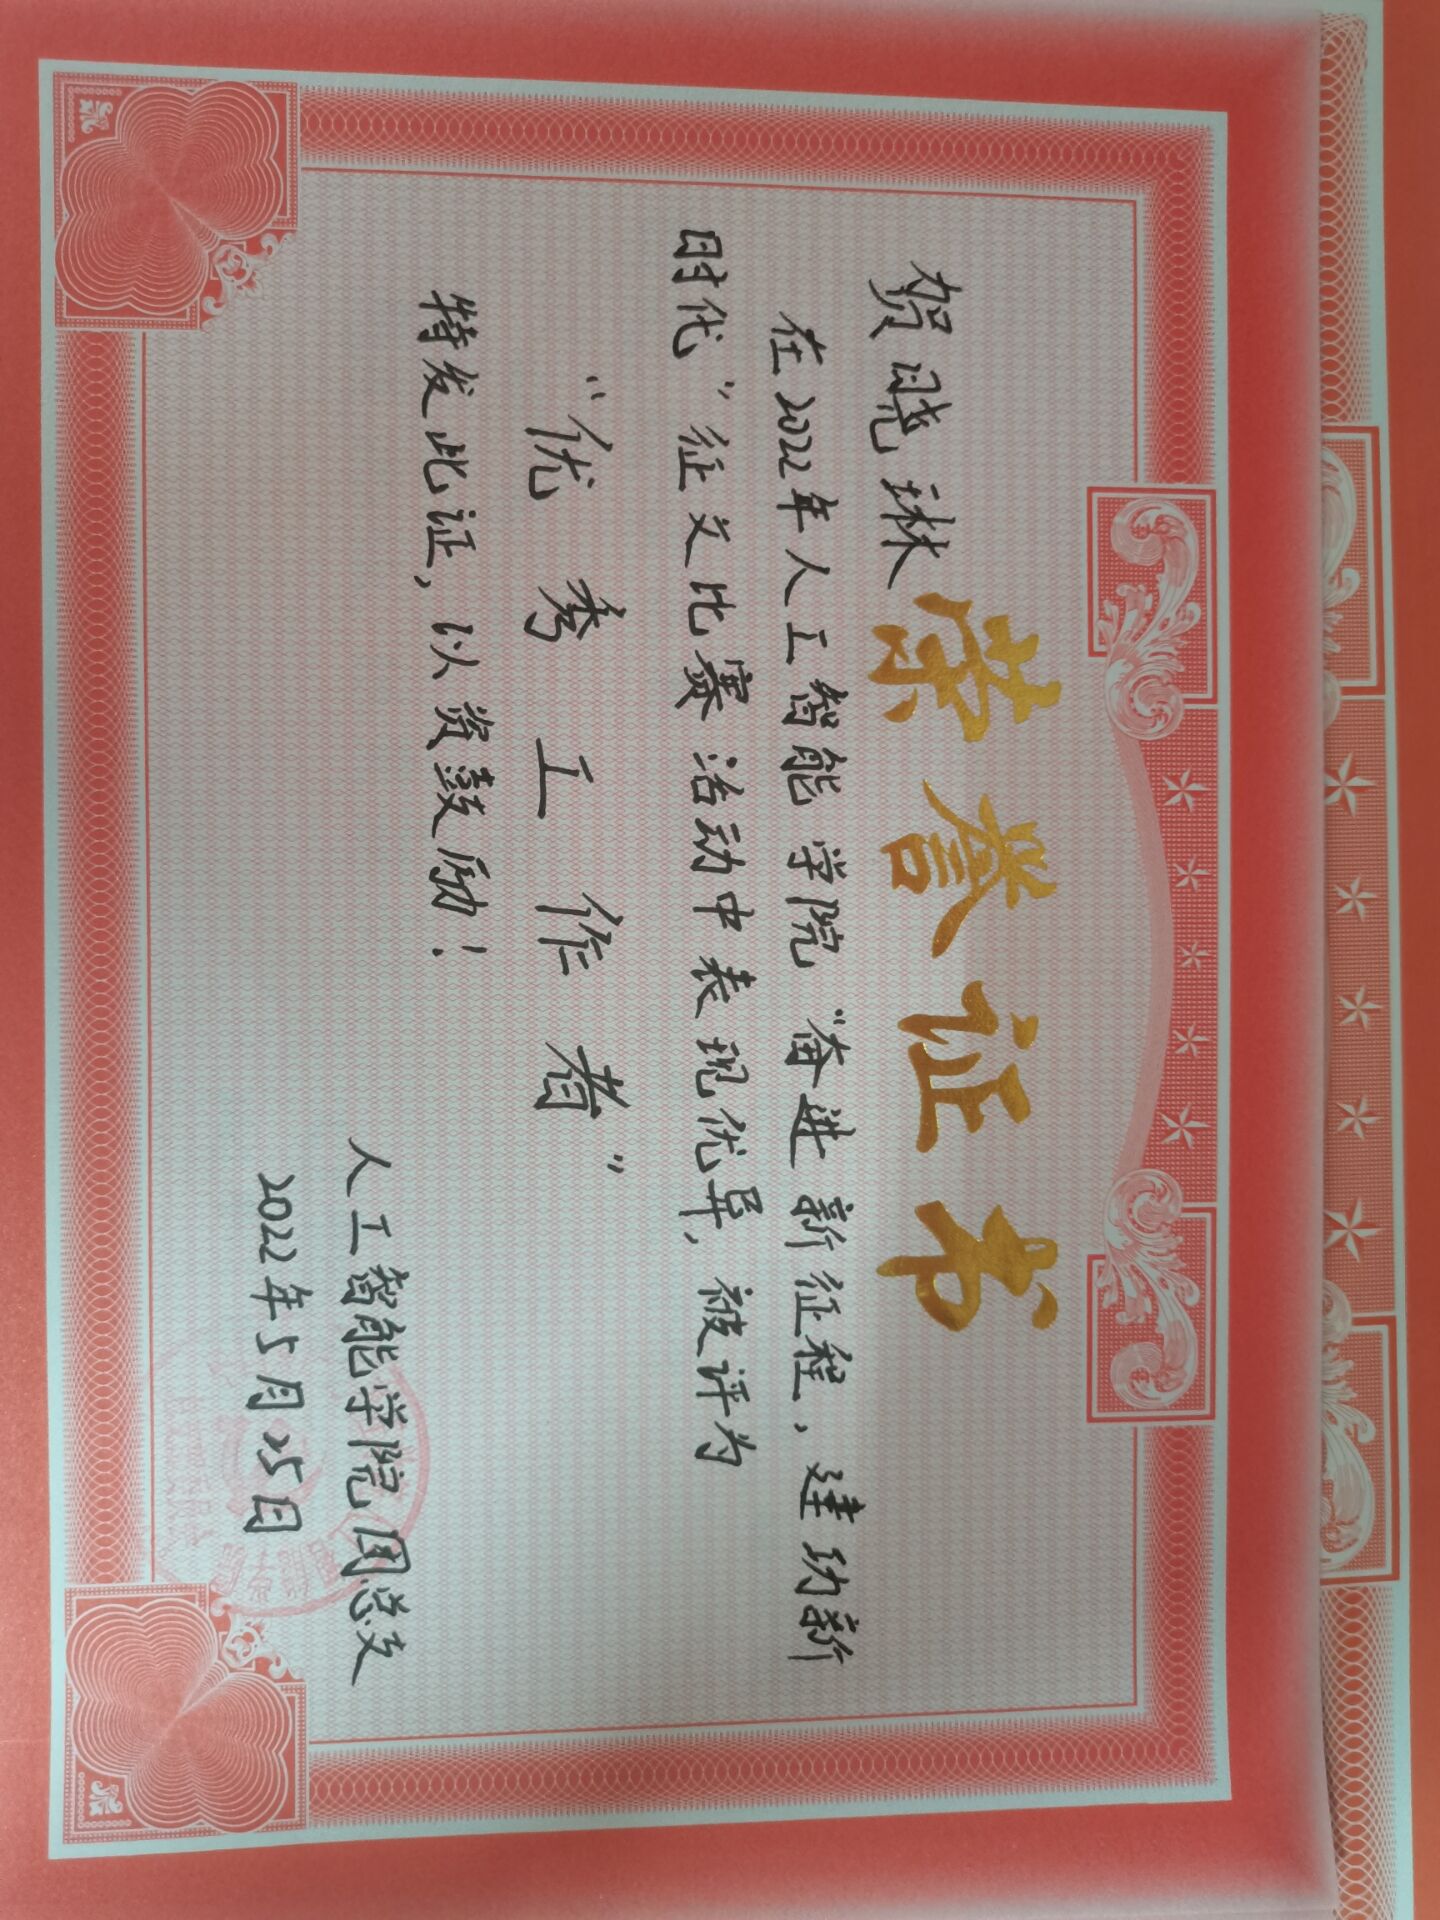 荣誉证书
贺晓琳
在2022年人工智能学院“奋进新征程，建功新
时代”征文比赛活动中表现优异，被评为
“优秀工作者”
特发此证，以资鼓励！
人工智能学院团总支
2022年5月25日